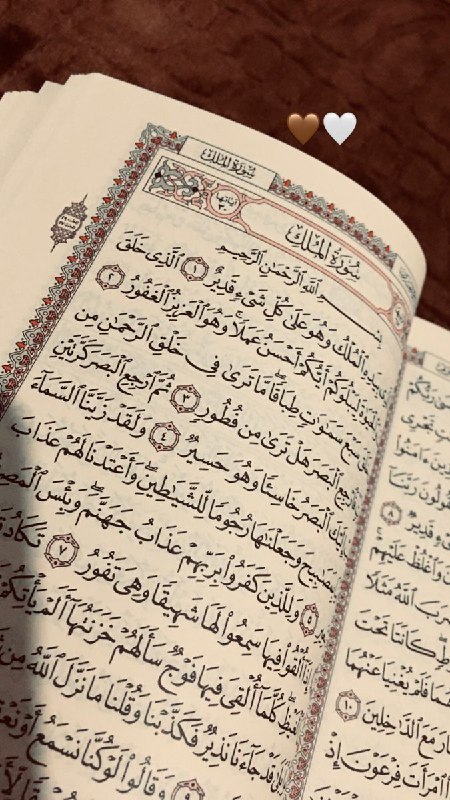 سُورَةُ المُلْكِ
سُورَةُ المُلْكِ
آيَاتُهَا ٣٠
بِسْمِ ٱللَّهِ ٱلرَّحْمَٰنِ ٱلرَّحِيمِ
بِيَدِهِ ٱلْمُلْكُ وَهُوَ عَلَىٰ كُلِّ شَىْءٍ قَدِيرٌ ١ ٱلَّذِى خَلَقَ
لِيَبْلُوَكُمْ أَيُّكُمْ أَحْسَنُ عَمَلًا وَهُوَ ٱلْعَزِيزُ ٱلْغَفُورُ ٢
سَبْعَ سَمَٰوَٰتٍ طِبَاقًا مَّا تَرَىٰ فِى خَلْقِ ٱلرَّحْمَٰنِ مِن
فَٱرْجِعِ ٱلْبَصَرَ هَلْ تَرَىٰ مِن فُطُورٍ ٣ ثُمَّ ٱرْجِعِ ٱلْبَصَرَ كَرَّتَيْنِ
ٱلْبَصَرُ خَاسِئًا وَهُوَ حَسِيرٌ ٤ وَلَقَدْ زَيَّنَّا ٱلسَّمَآءَ
بِمَصَٰبِيحَ وَجَعَلْنَٰهَا رُجُومًا لِّلشَّيَٰطِينِ وَأَعْتَدْنَا لَهُمْ عَذَابَ
٥ وَلِلَّذِينَ كَفَرُوا۟ بِرَبِّهِمْ عَذَابُ جَهَنَّمَ وَبِئْسَ ٱلْمَصِيرُ
إِذَآ أُلْقُوا۟ فِيهَا سَمِعُوا۟ لَهَا شَهِيقًا وَهِىَ تَفُورُ ٧ تَكَادُ
كُلَّمَآ أُلْقِىَ فِيهَا فَوْجٌ سَأَلَهُمْ خَزَنَتُهَآ أَلَمْ يَأْتِكُمْ
قَدْ جَآءَنَا نَذِيرٌ فَكَذَّبْنَا وَقُلْنَا مَا نَزَّلَ ٱللَّهُ مِن
٩ وَقَالُوا۟ لَوْ كُنَّا نَسْمَعُ أَوْ نَعْقِلُ
رَبُّكُمْ
تَجْرِى
ءَامَنُوا۟
يَقُولُونَ رَبَّنَآ
قَدِيرٌ ٨
وَٱغْلُظْ عَلَيْهِمْ
ضَرَبَ ٱللَّهُ مَثَلًا
كَانَتَا تَحْتَ
فَلَمْ يُغْنِيَا عَنْهُمَا
مَعَ ٱلدَّٰخِلِينَ ١٠
ٱمْرَأَتَ فِرْعَوْنَ إِذْ